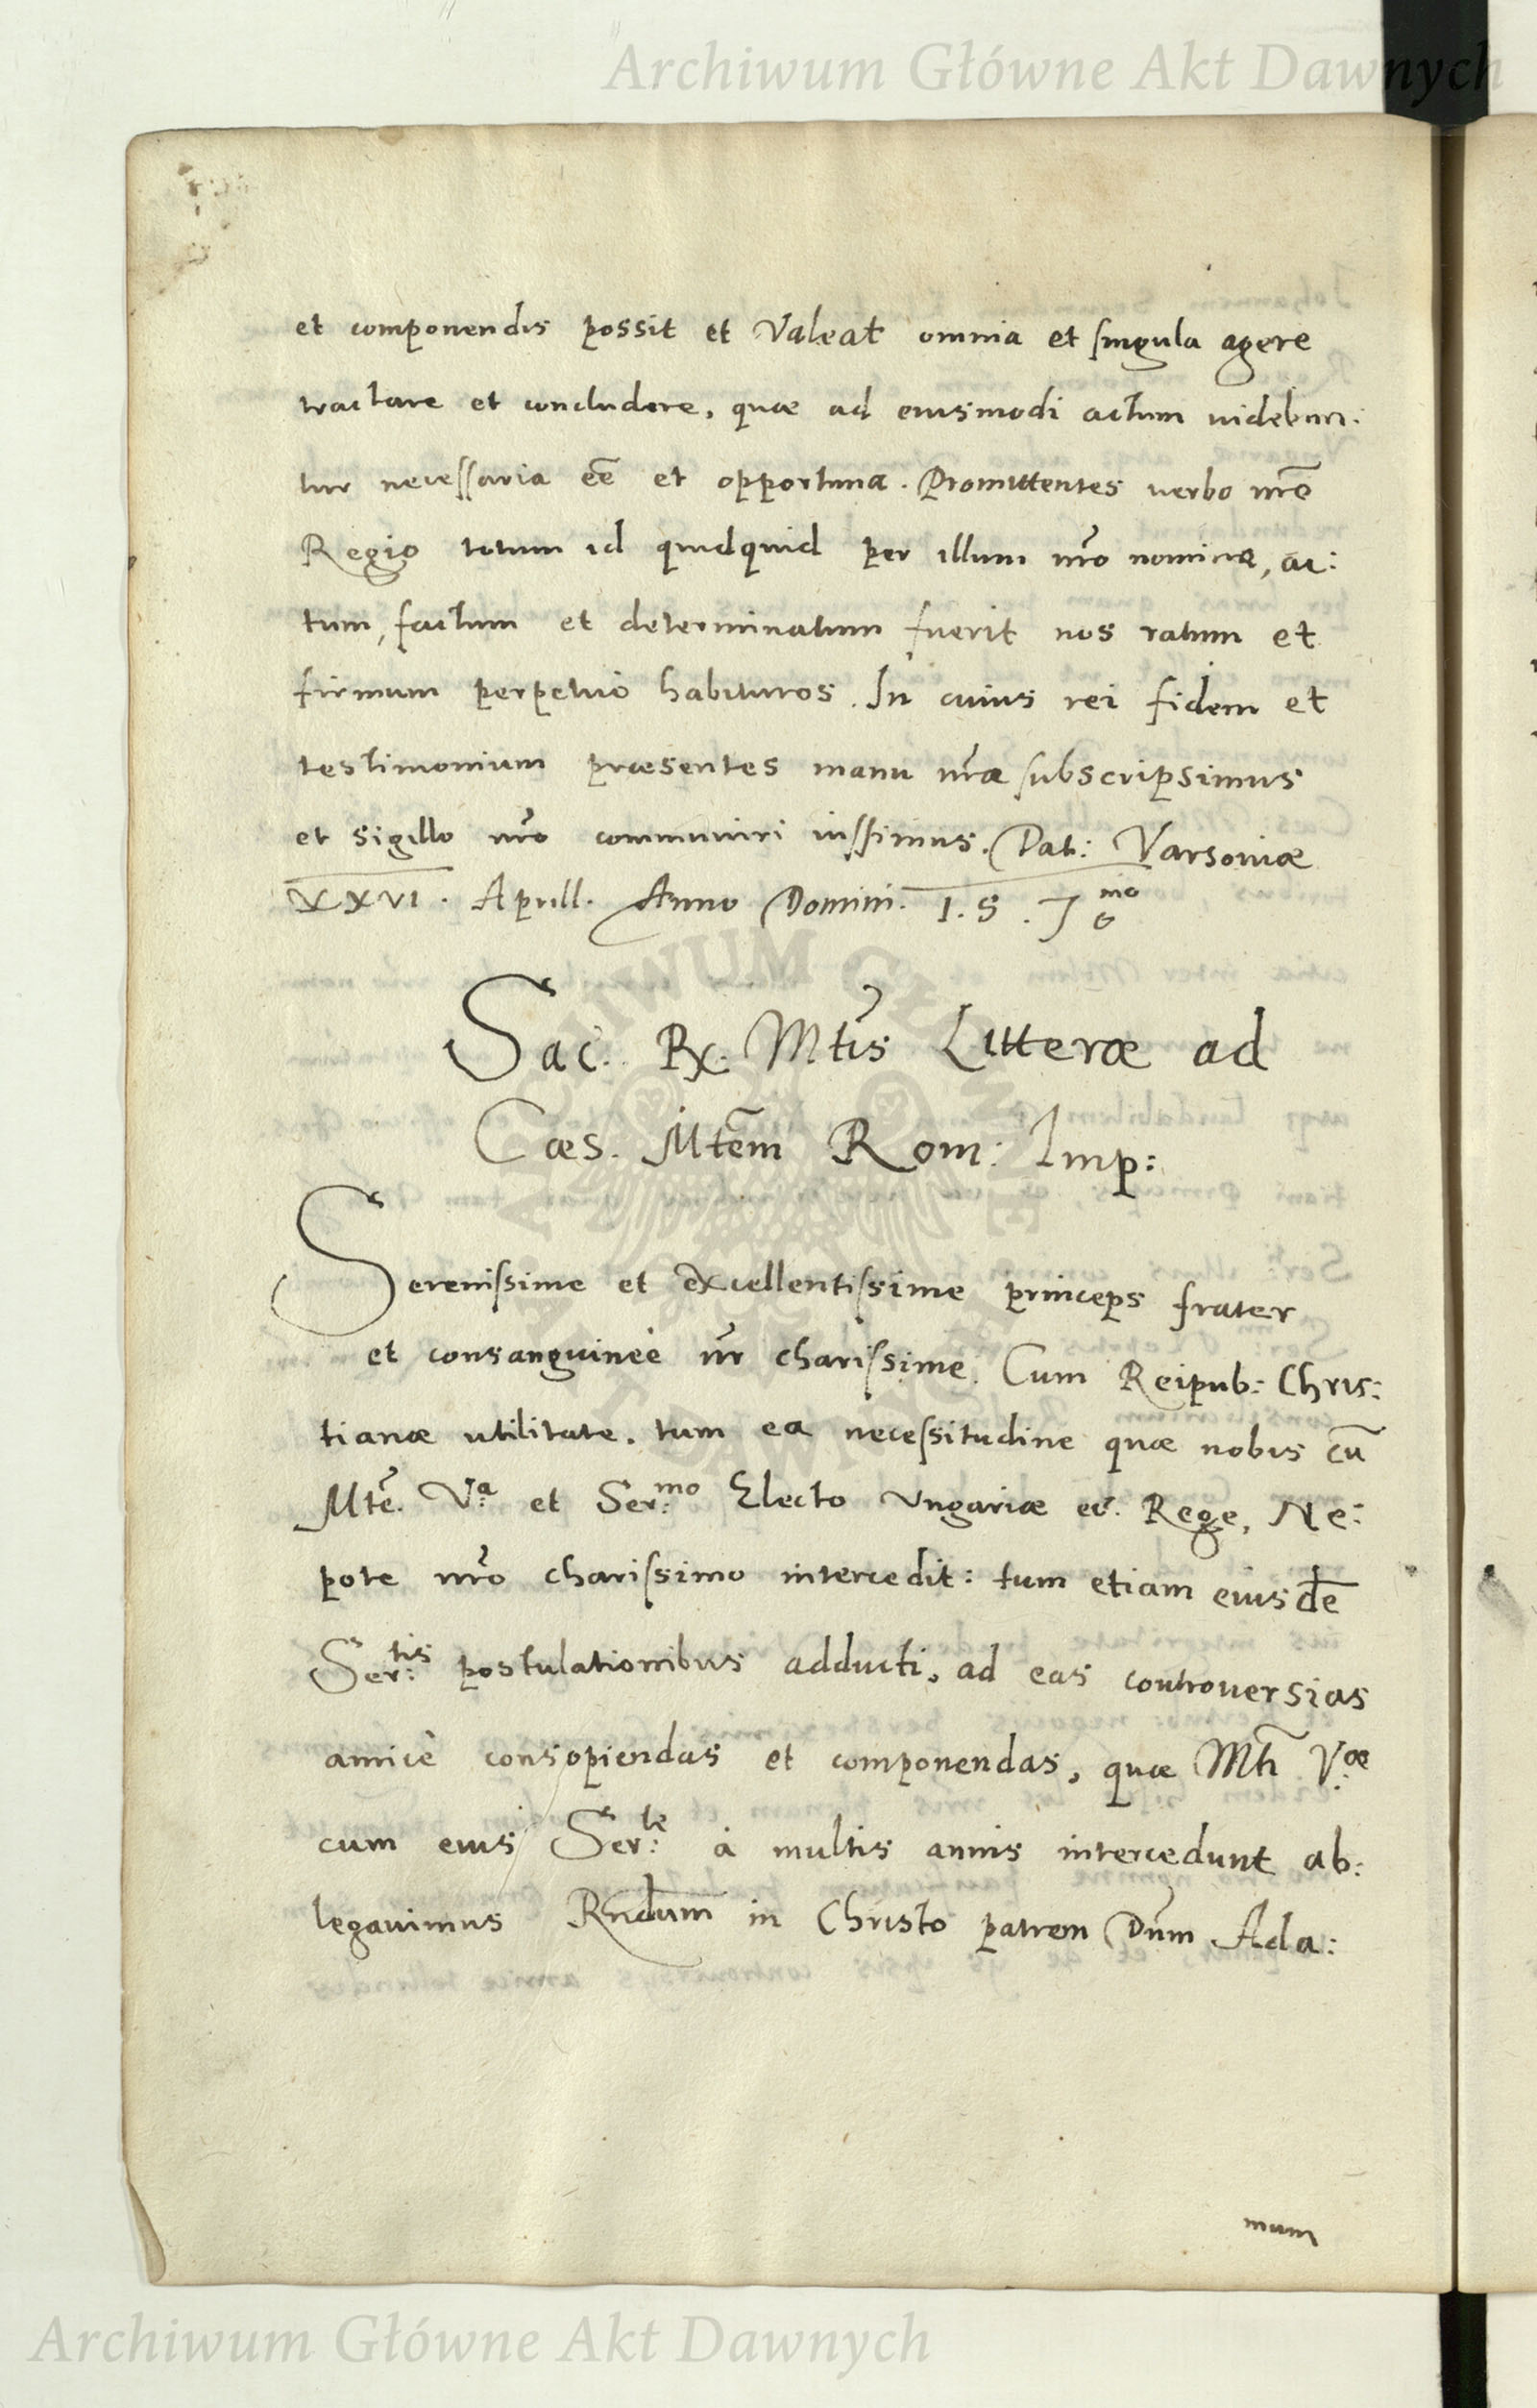 Archiwum Główne Akt Dawnych
et componendis possit et Valeat omnia et singula agere
tractare et concludere, quæ ad eiusmodi actum videbun:
tur necessaria eē et opportuna. Promittentes verbo nr̄o
Regio totum id quidquid per illum nr̄o nomine, ac:
tum, factum et determinatum fuerit nos ratum et
firmum perpetuò habituros. In cuius rei fidem et
testimonium præsentes manu nr̄a subscripsimus
et sigillo nr̄o communiri iussimus. Dat: Varsoviæ
XXVI. Aprill. Anno Domini. 1.5.70mo
Sac. Rx. Mtis Litteræ ad
Cæs. Mtēm Rom: Imp:
Serenissime et excellentissime princeps frater
et consanguineè nr̄ charissime. Cum Reipub: Chris:
tianæ utilitate, tum ea necessitudine quæ nobis cū
Mtē. Va et Ser:mo Electo Ungariæ ec. Rege, Ne:
pote nr̄o charissimo intercedit: tum etiam eiusdē
Ser:tis postulationibus adducti, ad eas controversias
amicè consopiendas et componendas, quæ Mti Væ
cum eius Ser:te à multis annis intercedunt ab:
legavimus Rndum in Christo patrem Dnm Ada:
mum
Archiwum Główne Akt Dawnych